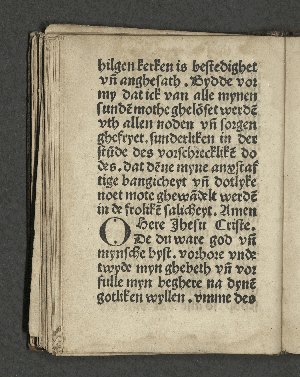 hilgen kerken is bestedighet
vñ anghesath. Bydde vor
my dat ick van alle mynen
sundẽ mothe ghelöset werdẽ
vth allen noden vñ sorgen
ghefryet. sunderliken in der
stũde des vorschrecklikẽ do
des. dat dẽne myne anxstaf
tige bangicheyt vñ dotlyke
noet mote ghewãdelt werdẽ
in de frolikẽ salicheyt. Amen
O Here Jhesu Criste.
De du ware god vñ
mynsche byst. vorhore vnde
twyde myn ghebeth vñ vor
fulle myn beghere na dynẽ
gotliken wyllen. vmme des